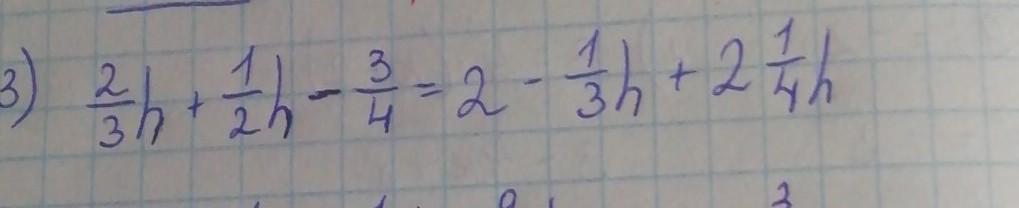 3) 2/3h + 1/2h - 3/4 = 2 - 1/3h + 2 1/4h